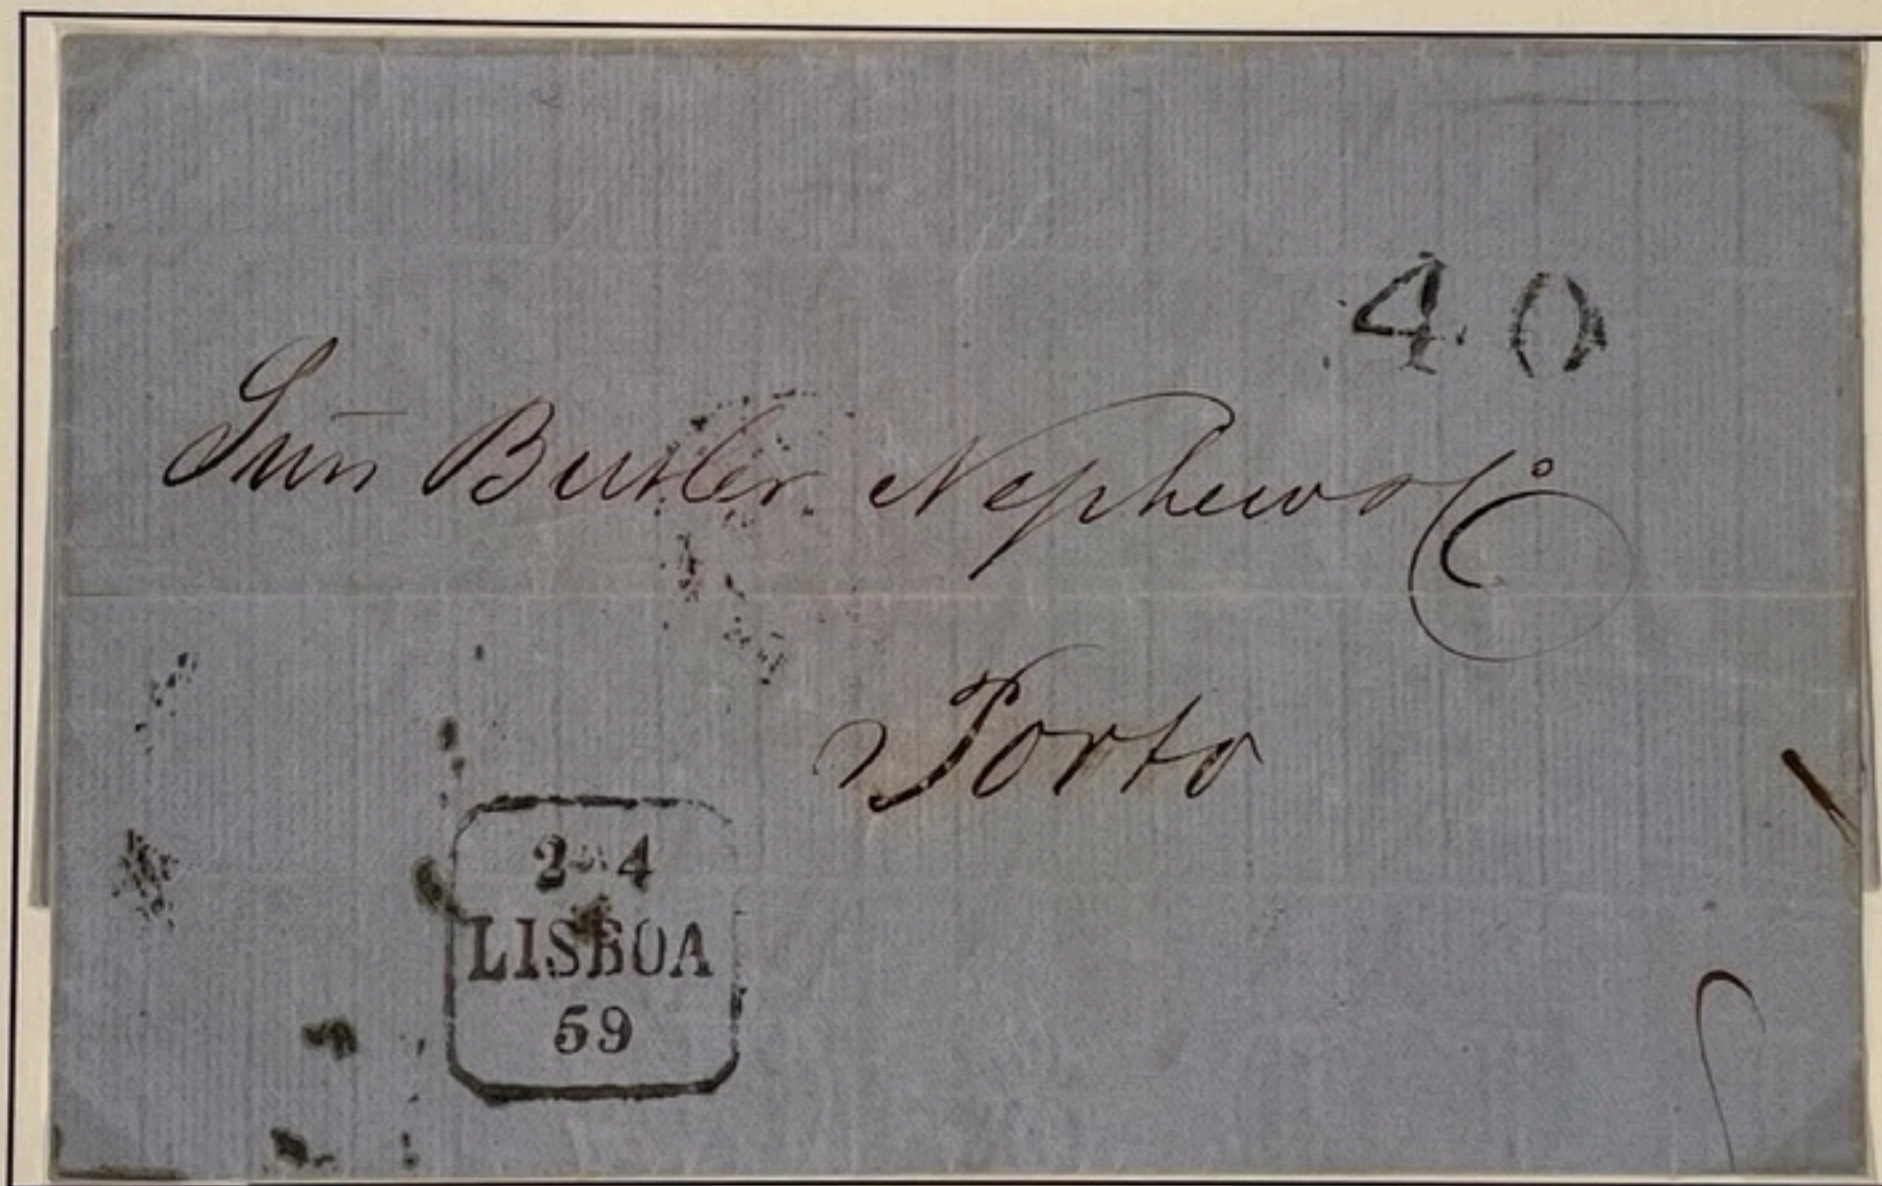 40
Butler Nephew & Co
Porto
2 4
LISBOA
59